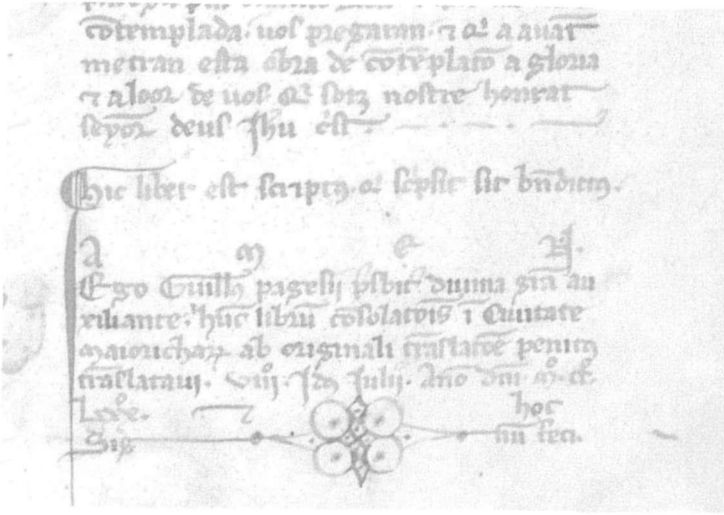 cōtemplada. uos pregaran. ⁊ q̄ a auāt
metran esta obra de cōtēplatō a gloria
⁊ a loor de uos q̄ sotz nostre honrat
seyōr deus Jhū c̄st.
Hic liber est scriptꝰ. q̄ scpsit sit bn̄dictus.
A M E N.
Ego Guillꝰ pagesii p̄sbit̄ diuina grā au
xiliante. hūc librū cōsolatōis ī Ciuitate
maioricharꝝ ab originali trāslatōe penitꝰ
trāslataui. viii.º Jdꝰ Julii. Ano dn̄i .mº. ccº.
Lxxxº. hoc
Sigꝰ num feci.